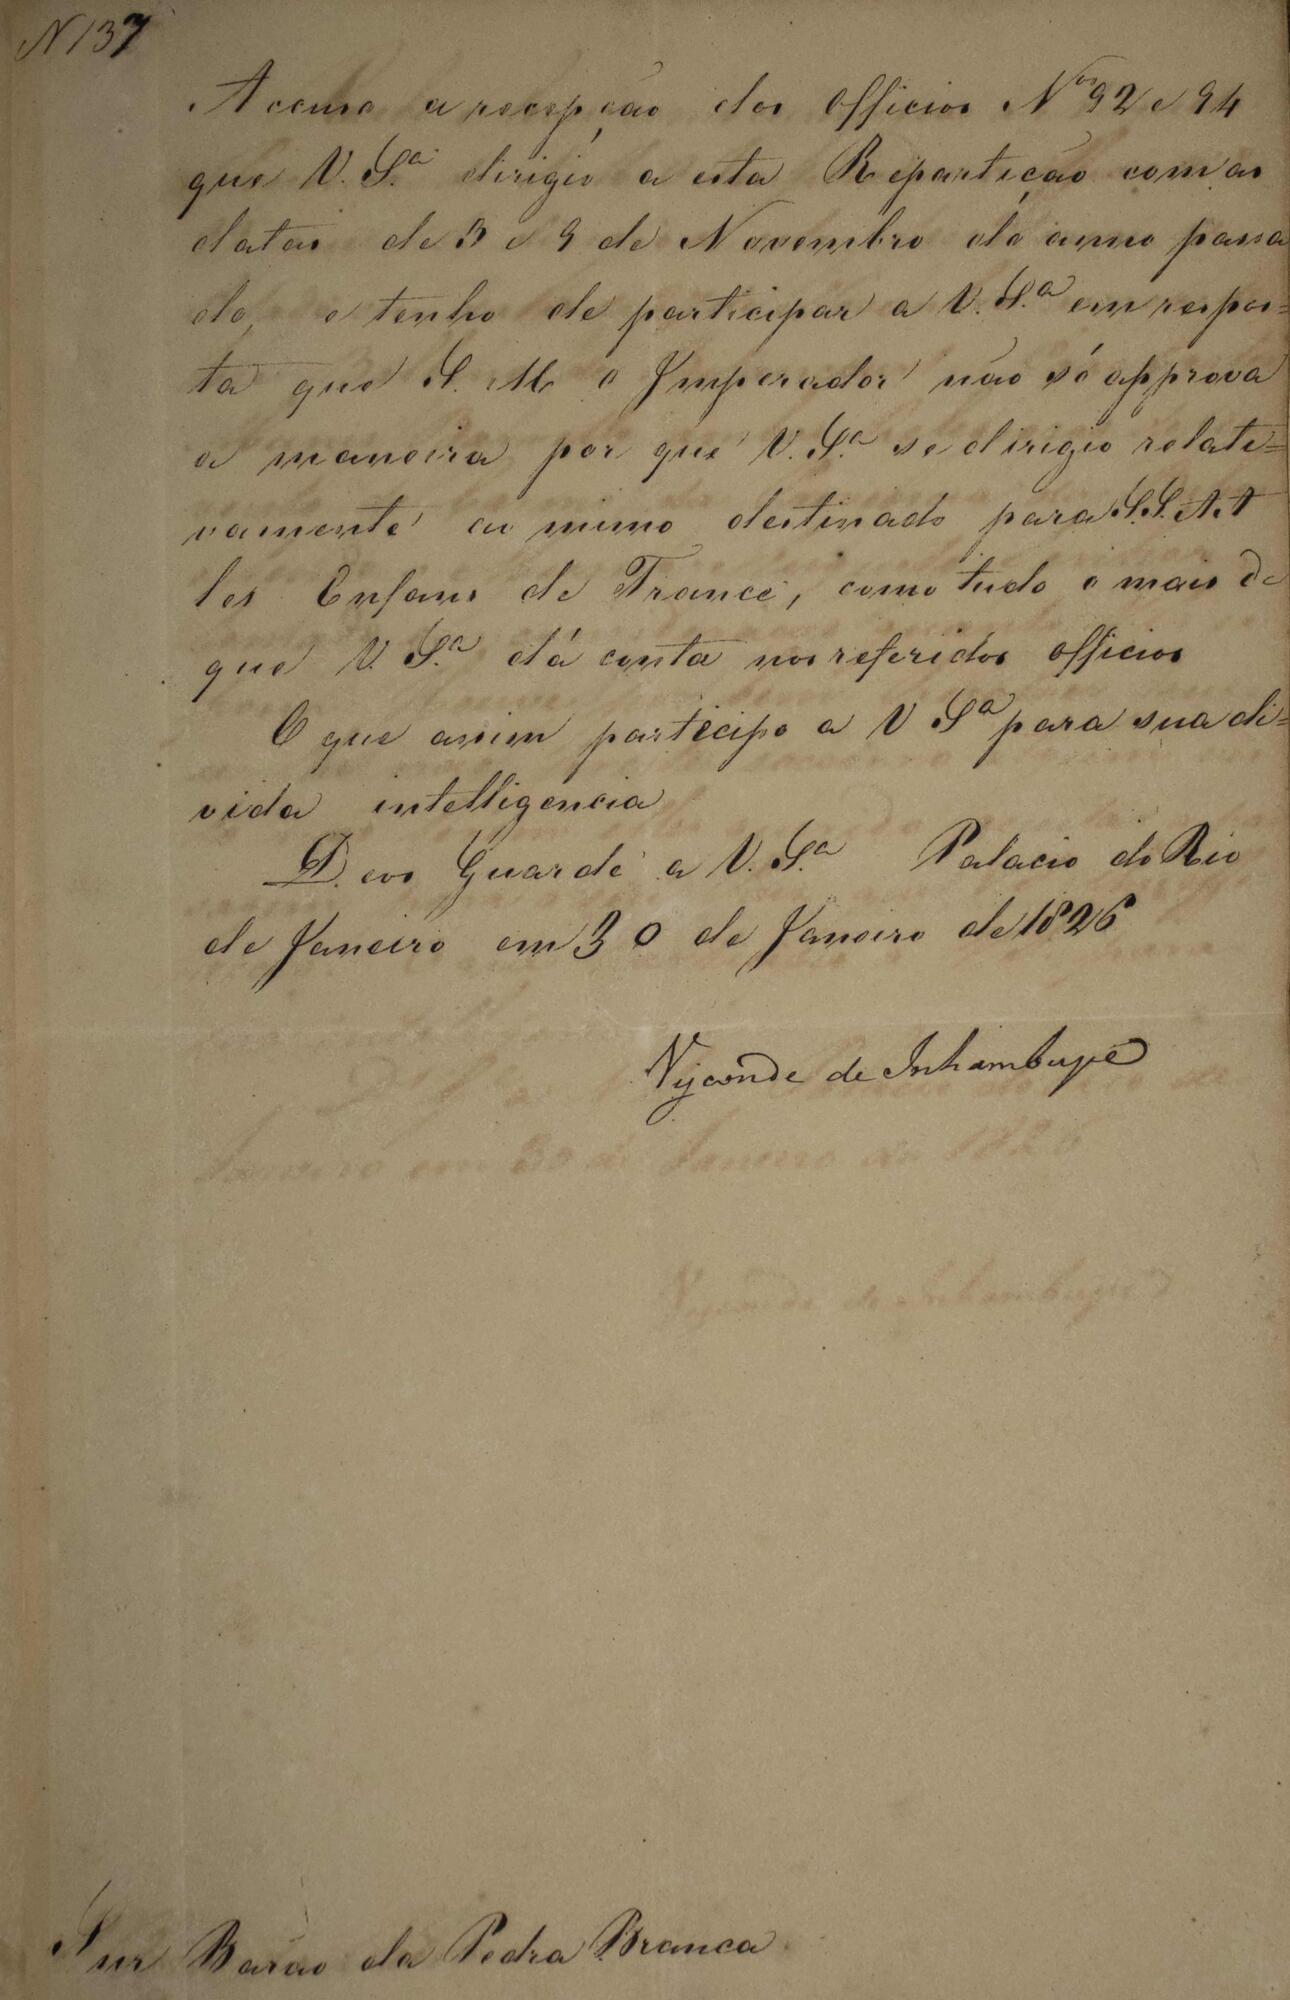 N 137
Accuso a recepção dos Officios Nos 92 e 94
que V. S.a dirigio a esta Repartição com as
datas de 3 e 9 de Novembro do anno passa
do, e tenho de participar a V. S.a em respos=
ta que S. M. o Imperador não só approva
a maneira por que V. S.a se dirigio relati=
vamente ao mimo destinado para S.S. A.A
les Enfans de France, como tudo o mais de
que V. S.a dá conta nos referidos officios
O que assim participo a V S.a para sua di=
vida intelligencia
Deos Guarde a V. S.a Palacio do Rio
de Janeiro em 30 de Janeiro de 1826
Visconde de Inhambupe
Janeiro em 30 de Janeiro de 1826
Visconde de Inhambupe
Snr Barão da Pedra Branca